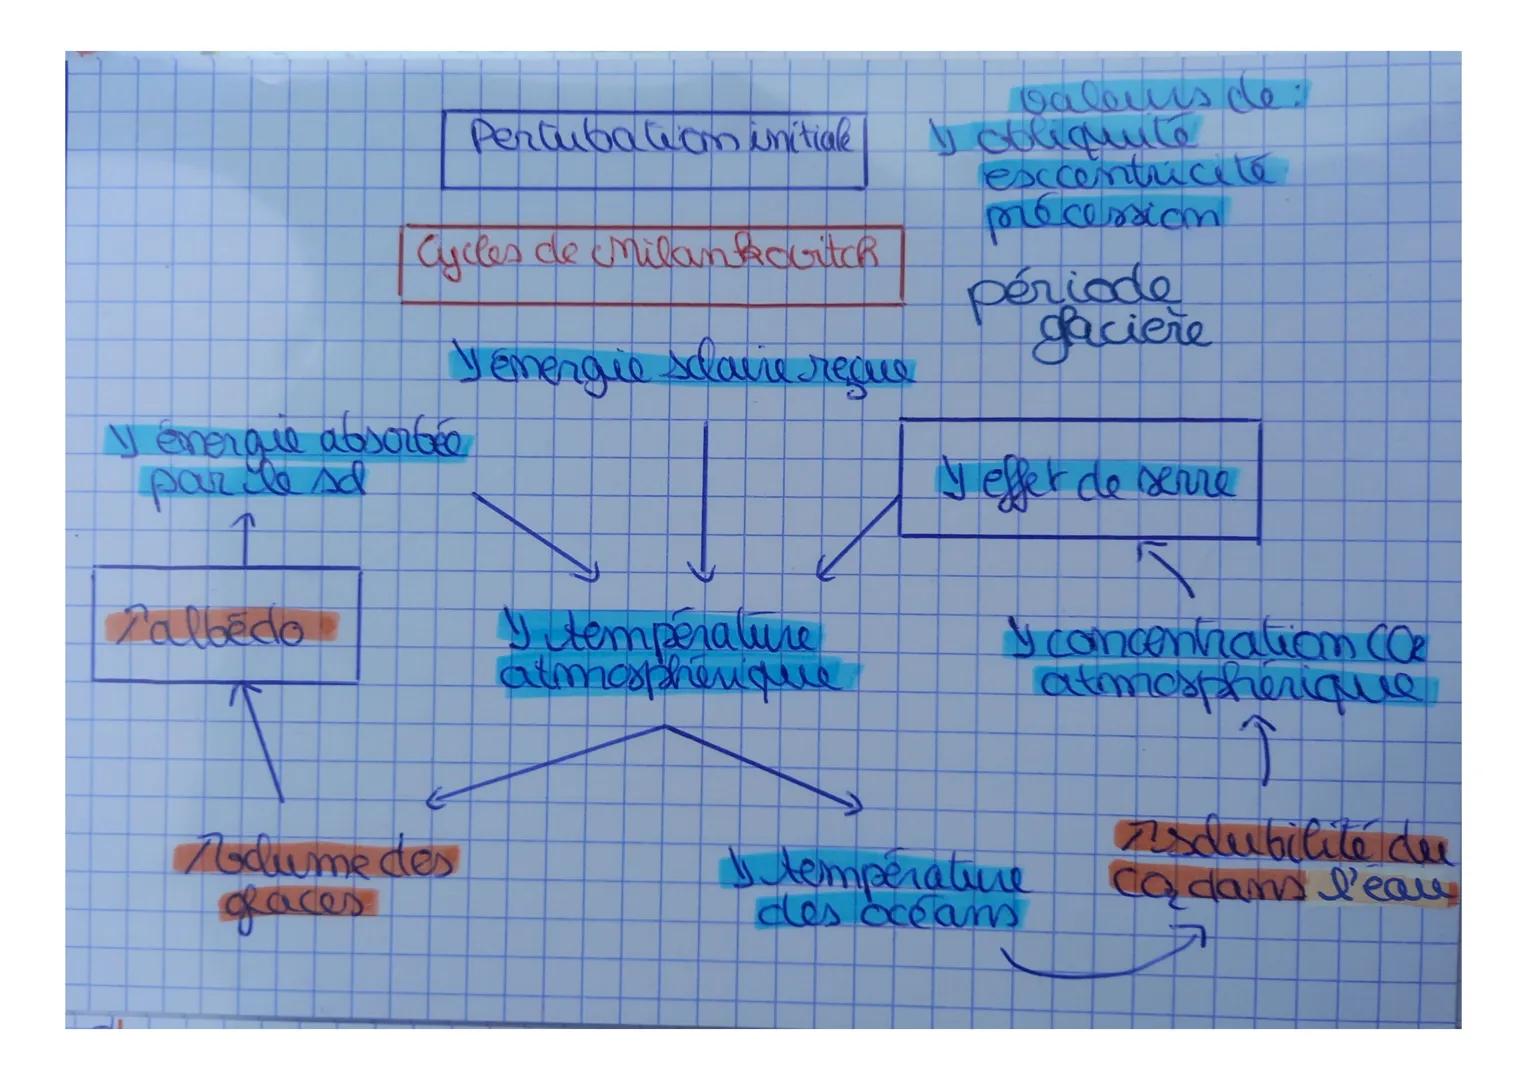 Pertubation initiale
valeurs de :
↘ obliquité
excentricité
précession
Cycles de Milankovitch
période
glacière
↘ énergie solaire reçue
↘ énergie absorbée
par le sol
↘ effet de serre
↗ albédo
↘ température
atmosphérique
↘ concentration CO2
atmosphérique
↗ volume des
glaces
↘ température
des océans
↗ solubilité du
CO2 dans l'eau